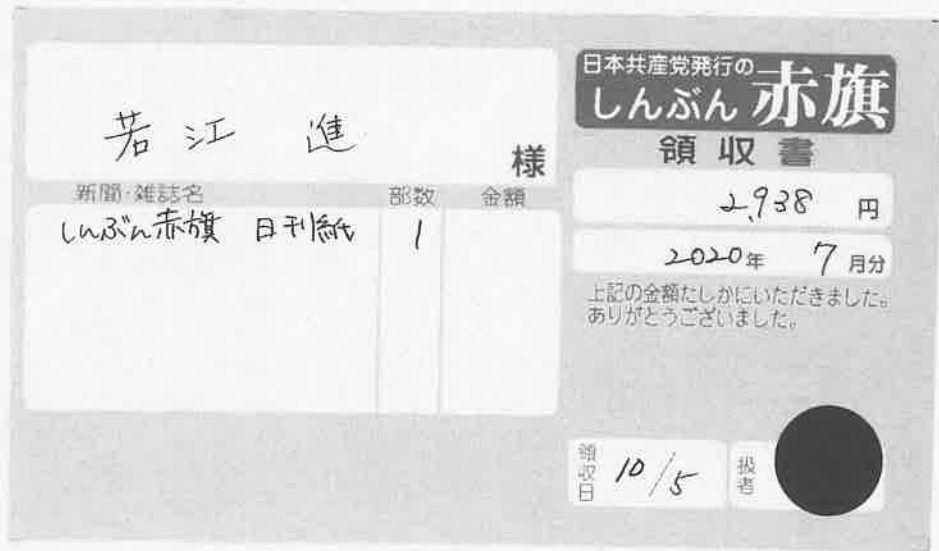 若江 進 様
新聞・雑誌名 部数 金額
しんぶん赤旗 日刊紙 1
日本共産党発行の
しんぶん 赤旗
領収書
2,938 円
2020年 7月分
上記の金額たしかにいただきました。
ありがとうございました。
領収日 10/5 扱者